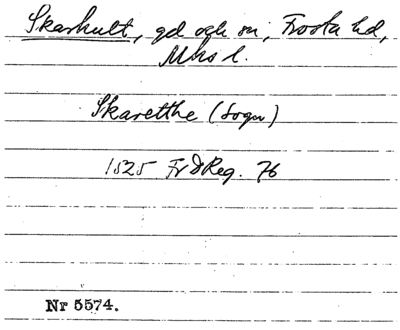 Skarhult, gd och sn, Frosta hd,
Mhs l.
Skaretthe (Sogn)
1525 Fr I Reg. 76
Nr 5574.